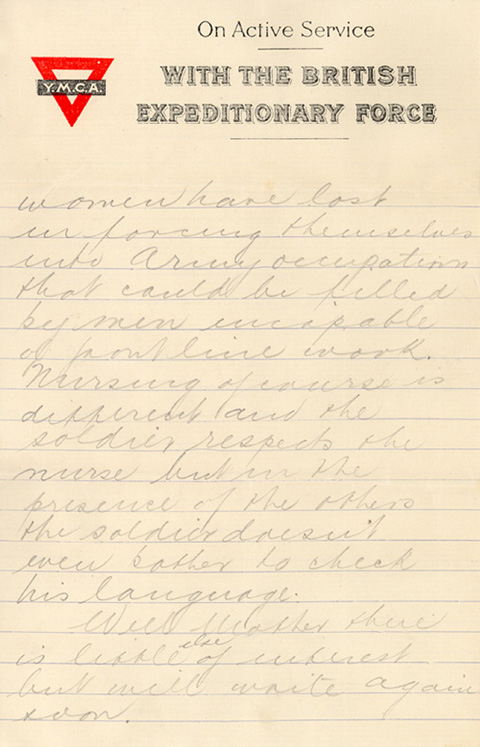 On Active Service
WITH THE BRITISH
EXPEDITIONARY FORCE
Y.M.C.A.
women have lost
in forcing themselves
into Army occupations
that could be filled
by men incapable
of front line work.
Nursing of course is
different and the
soldier respects the
nurse but in the
presence of the others
the soldier doesn't
even bother to check
his language.
Well Mother there
is little else of interest
but will write again
soon.